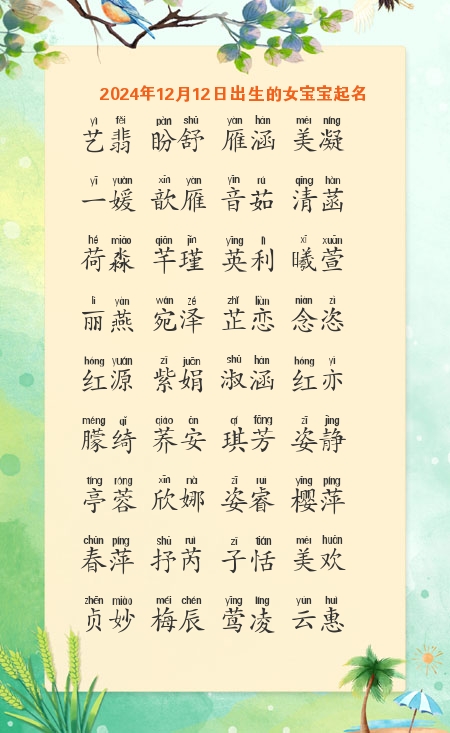 2024年12月12日出生的女宝宝起名
yì fěi pàn shū yàn hán měi níng
艺翡 盼舒 雁涵 美凝
yī yuàn xīn yàn yīn rú qīng hàn
一媛 歆雁 音茹 清菡
hé miǎo qiān jǐn yīng lì xī xuān
荷淼 芊瑾 英利 曦萱
lì yàn wǎn zé zhǐ liàn niàn zì
丽燕 宛泽 芷恋 念恣
hóng yuán zǐ juān shū hán hóng yì
红源 紫娟 淑涵 红亦
méng qǐ qiáo ān qí fāng zī jìng
朦绮 荞安 琪芳 姿静
tíng róng xīn nà zī ruì yīng píng
亭蓉 欣娜 姿睿 樱萍
chūn píng shū ruì zǐ tián měi huān
春萍 抒芮 子恬 美欢
zhēn miào méi chén yīng líng yún huì
贞妙 梅辰 莺凌 云惠